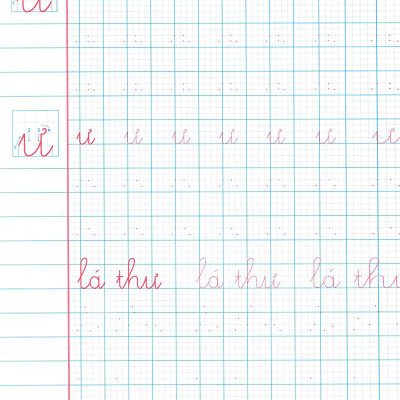 ư
ư ư ư ư ư ư ư ư
lá thư lá thư lá thư